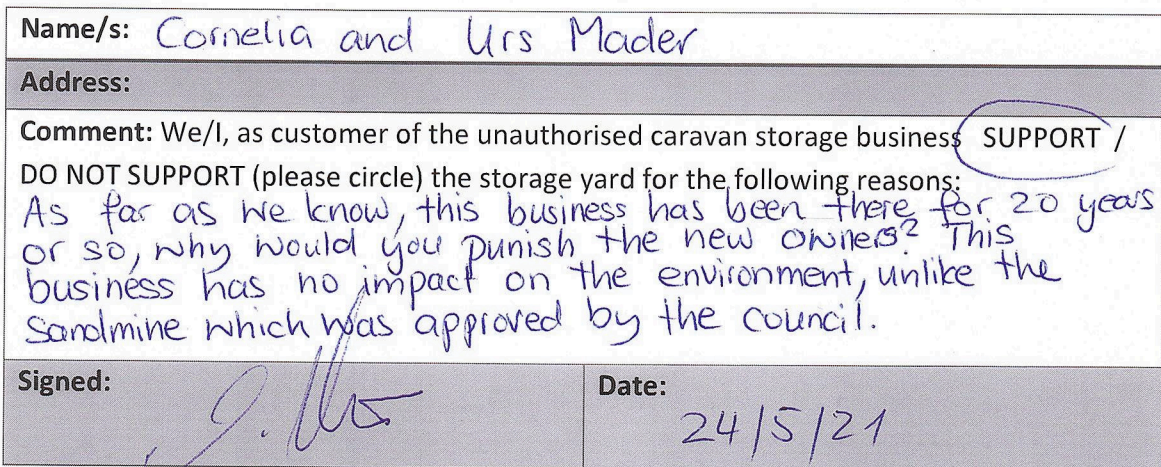 Name/s: Cornelia and Urs Mader
Address:
Comment: We/I, as customer of the unauthorised caravan storage business SUPPORT /
DO NOT SUPPORT (please circle) the storage yard for the following reasons:
As far as we know, this business has been there for 20 years
or so, why would you punish the new owners? This
business has no impact on the environment, unlike the
Sandmine which was approved by the council.
Signed:
Date:
24/5/21